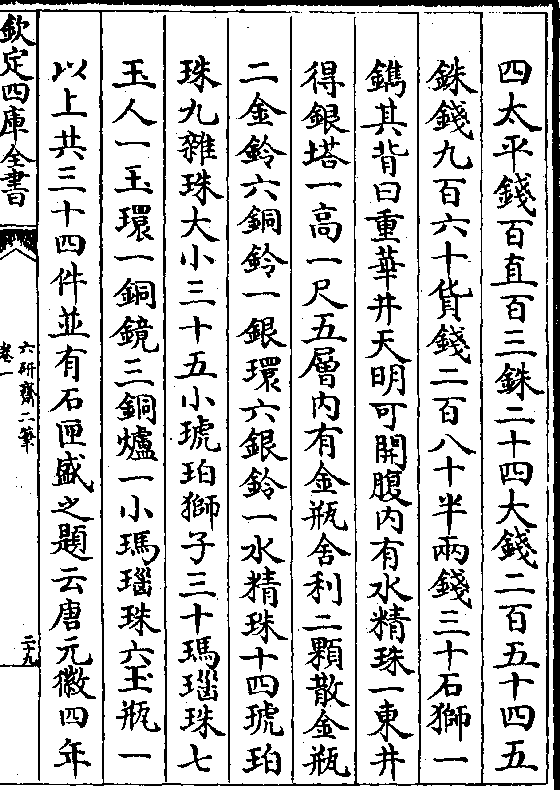 四太平錢百直百三銖二十四大錢二百五十四五
銖錢九百六十貨錢二百八十半兩錢三十石獅一
鐫其背曰重華井天明可開腹内有水精珠一東井
得銀塔一高一尺五層内有金瓶舍利二顆散金瓶
二金鈴六銅鈴一銀環六銀鈴一水精珠十四琥珀
珠九雜珠大小三十五小琥珀獅子三十瑪瑙珠七
玉人一玉環一銅鏡三銅爐一小瑪瑙珠六玉瓶一
以上共三十四件並有石匣盛之題云唐元徽四年
欽定四庫全書
六研齋二筆
卷一
二十九